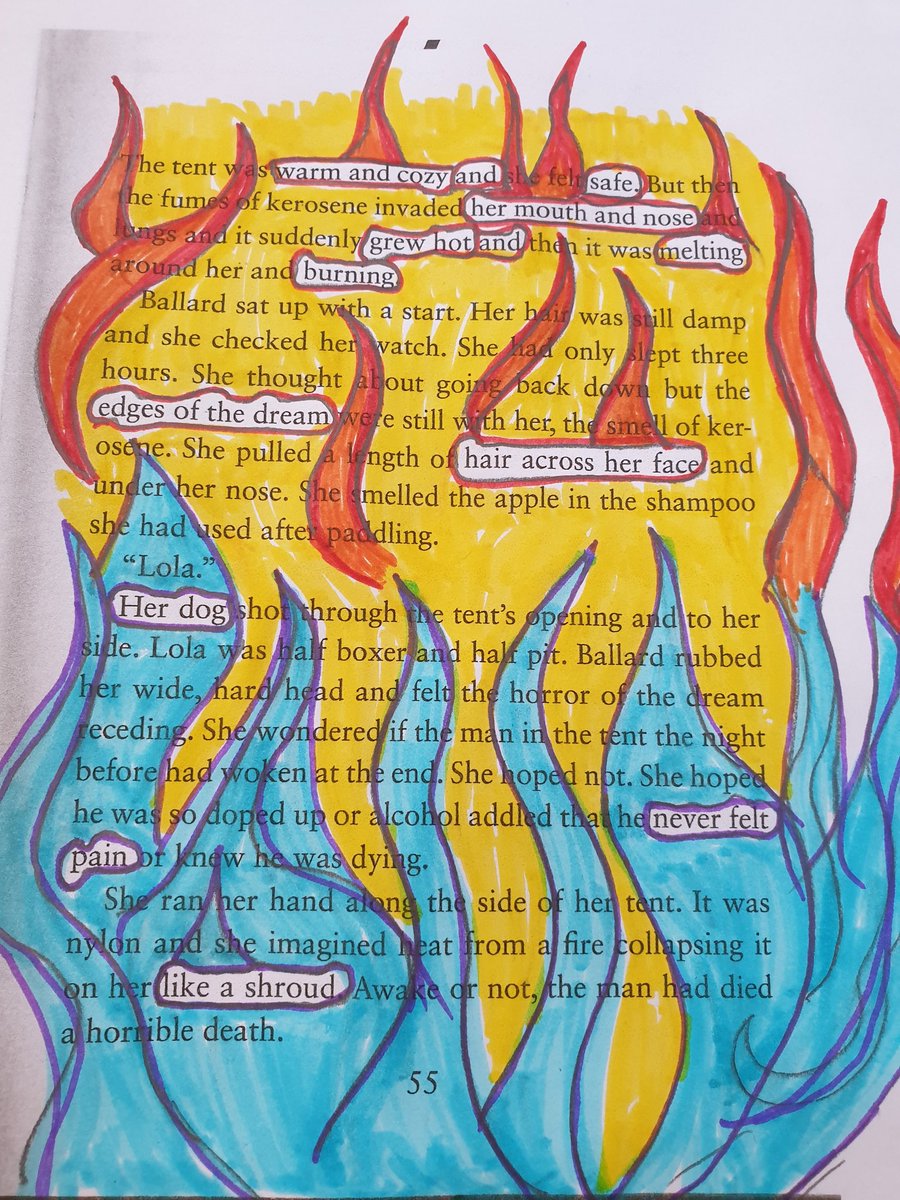 The tent was warm and cozy and she felt safe. But then
the fumes of kerosene invaded her mouth and nose and
lungs and it suddenly grew hot and then it was melting
around her and burning.
Ballard sat up with a start. Her hair was still damp
and she checked her watch. She had only slept three
hours. She thought about going back down but the
edges of the dream were still with her, the smell of ker-
osene. She pulled a length of hair across her face and
under her nose. She smelled the apple in the shampoo
she had used after paddling.
“Lola.”
Her dog shot through the tent’s opening and to her
side. Lola was half boxer and half pit. Ballard rubbed
her wide, hard head and felt the horror of the dream
receding. She wondered if the man in the tent the night
before had woken at the end. She hoped not. She hoped
he was so doped up or alcohol addled that he never felt
pain or knew he was dying.
She ran her hand along the side of her tent. It was
nylon and she imagined heat from a fire collapsing it
on her like a shroud. Awake or not, the man had died
a horrible death.
55